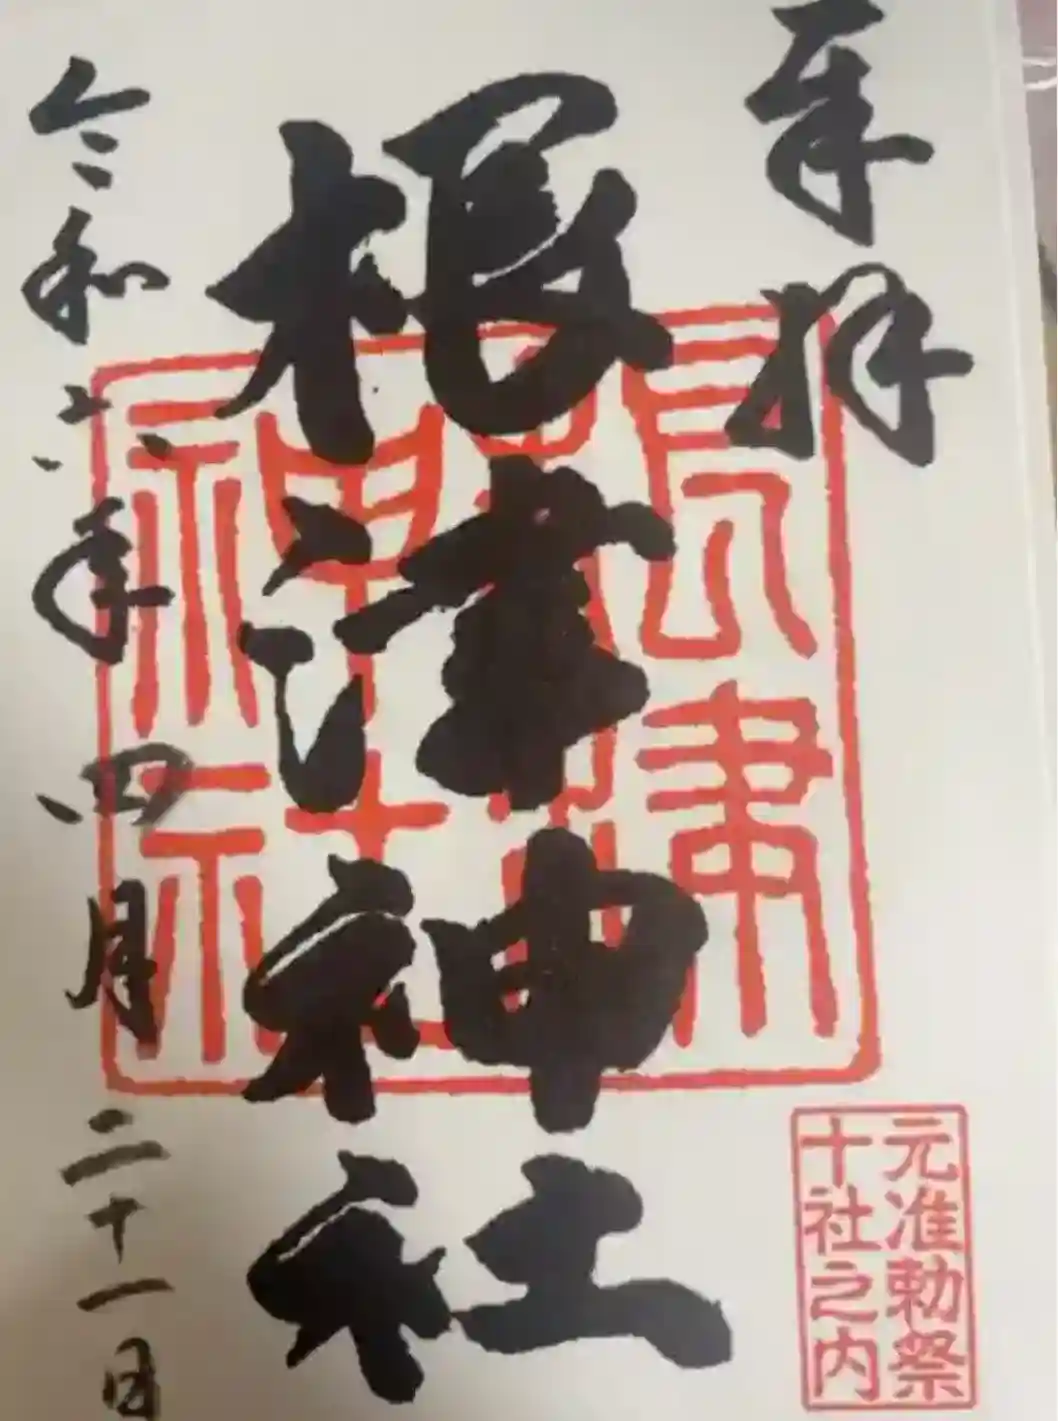 奉拝
元准勅祭
十社之内
根津神社
根津
神社
令和六年四月二十一日